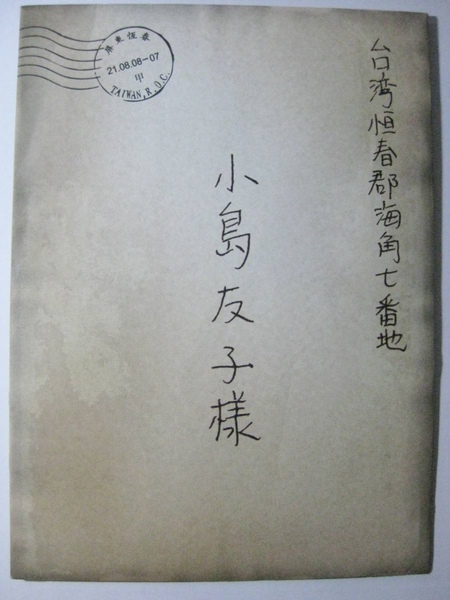 台湾恒春郡海角七番地
小島友子様
屏東恆春
21.08.08-07
甲
TAIWAN,R.O.C.